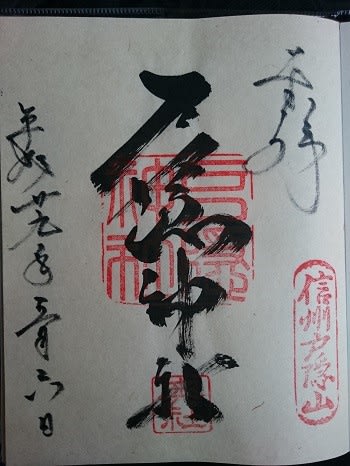 奉拝
信州戸隠山
戸隠神社
戸隠神社
平成廿九年五月六日